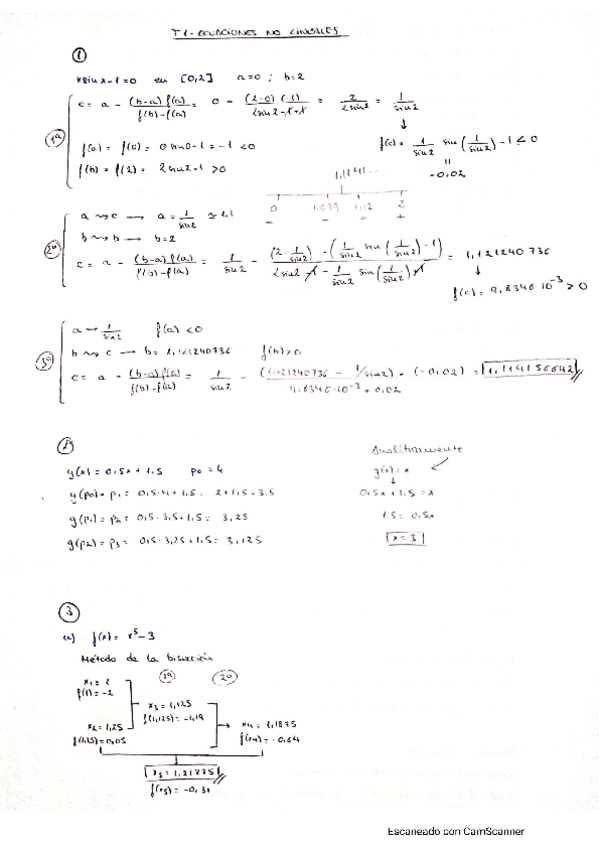 T1 - ECUACIONES NO LINEALES
①
x sin x - 1 = 0 en [0,2] a=0 ; b=2
1º c = a - (b-a) f(a) / f(b) - f(a) = 0 - (2-0)(-1) / 2 sin 2 - 1 + 1 = 2 / 2 sin 2 = 1 / sin 2
f(a) = f(0) = 0 sin 0 - 1 = -1 < 0
f(c) = 1/sin 2 sin (1/sin 2) - 1 < 0
-0,02
f(b) = f(2) = 2 sin 2 - 1 > 0
1,1141...
0 1,099 1,12 2
- - + +
2º a → c → a = 1/sin 2 ≃ 1,1
b → b → b = 2
c = a - (b-a) f(a) / f(b) - f(a) = 1/sin 2 - (2 - 1/sin 2) · (1/sin 2 sin (1/sin 2) - 1) / 2 sin 2 - 1 - 1/sin 2 sin (1/sin 2) + 1 = 1,121240736
f(c) = 9,8346·10⁻³ > 0
3º a → 1/sin 2 f(a) < 0
b → c → b = 1,121240736 f(b) > 0
c = a - (b-a) f(a) / f(b) - f(a) = 1/sin 2 - (1,121240736 - 1/sin 2) · (-0,02) / 9,8346·10⁻³ + 0,02 = 1,114156642
②
g(x) = 0,5x + 1,5 p₀ = 4
g(p₀) = p₁ = 0,5·4 + 1,5 = 2 + 1,5 = 3,5
g(p₁) = p₂ = 0,5·3,5 + 1,5 = 3,25
g(p₂) = p₃ = 0,5·3,25 + 1,5 = 3,125
Analíticamente
g(x) = x
0,5x + 1,5 = x
1,5 = 0,5x
x = 3
③
(a) f(x) = x⁵ - 3
Método de la bisección
1º 2º
x₁ = 1
f(1) = -2
x₃ = 1,125
f(1,125) = -1,19
x₂ = 1,25
f(1,25) = 0,05
x₄ = 1,1875
f(x₄) = -0,64
x₅ = 1,21875
f(x₅) = -0,31
Escaneado con CamScanner